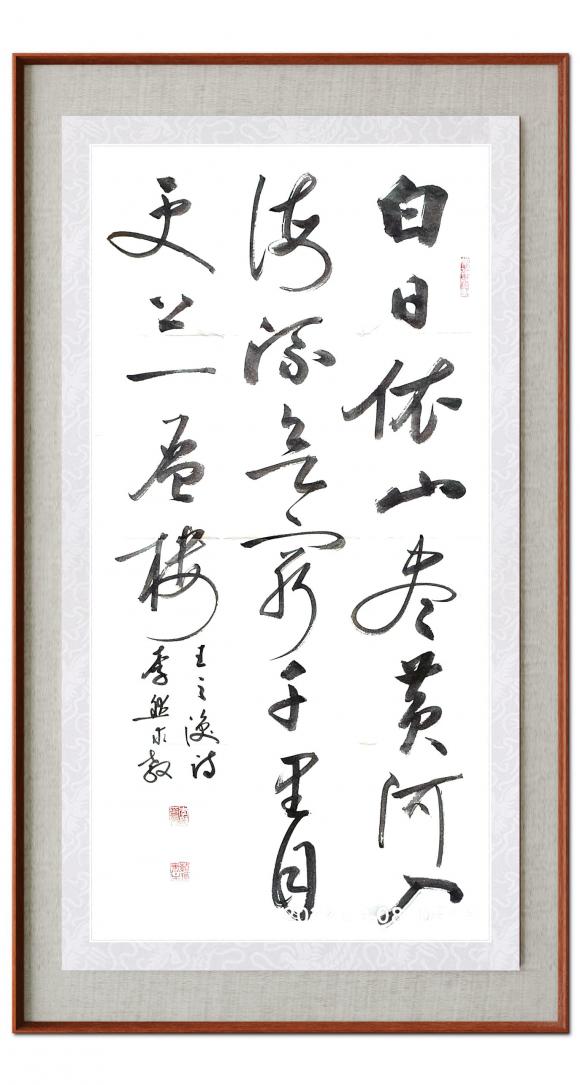 白日依山尽黄河入
海流欲穷千里目
更上一层楼
王之涣诗
李 求教